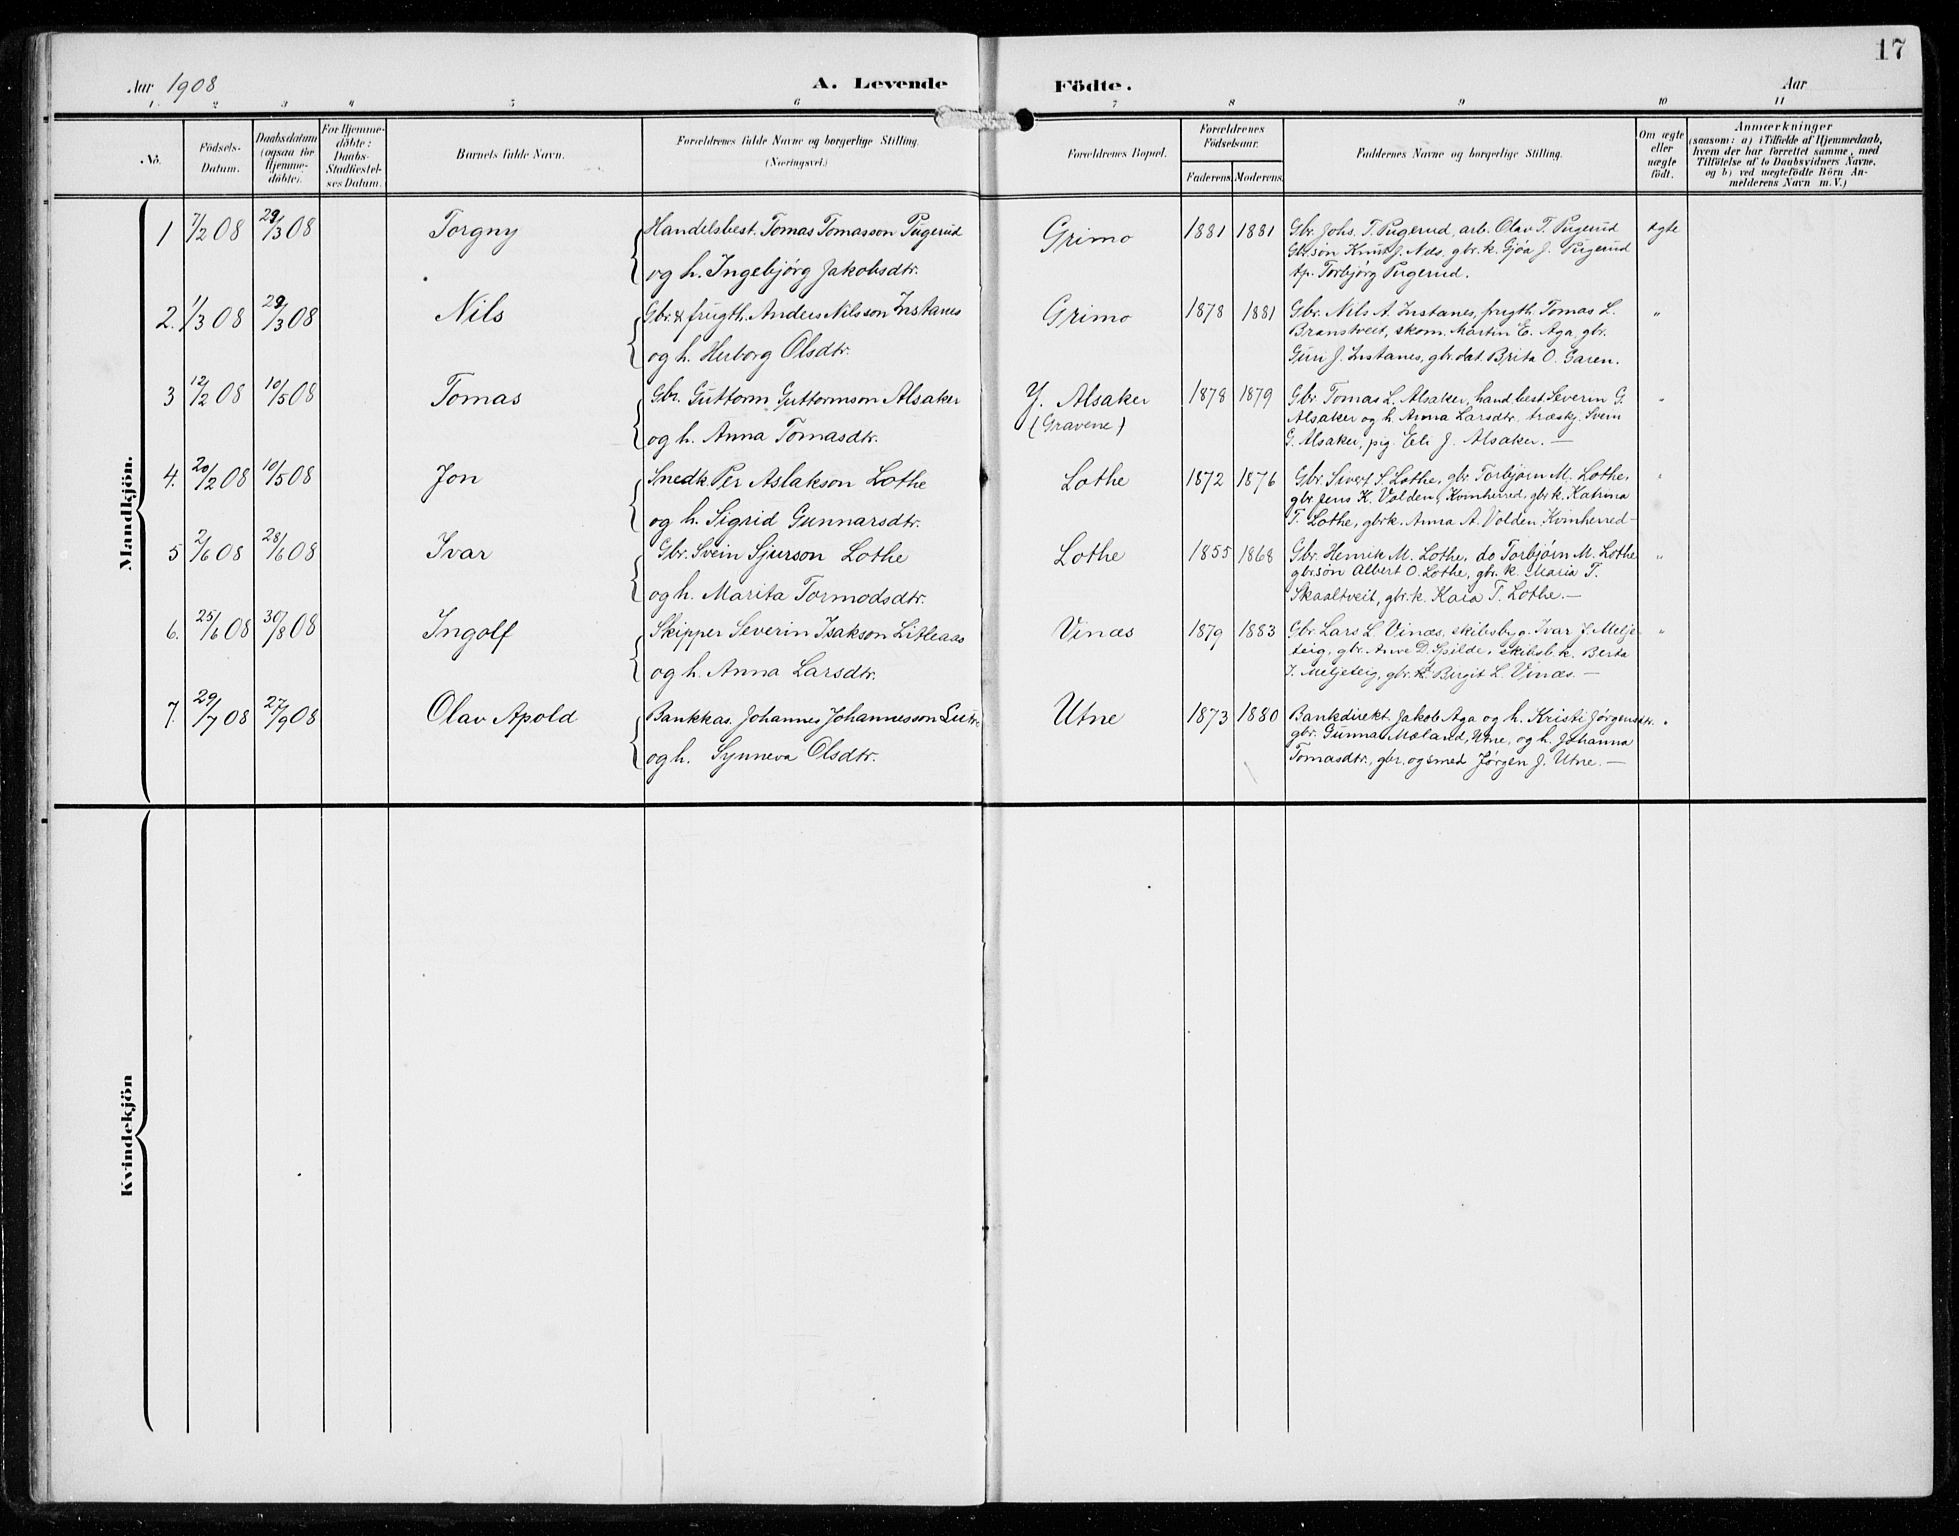 17
Aar 1908 A. Levende Födte. Aar
1. 2 3 4 5 6 7 8 9 10 11
No.
Födsels-
Datum.
Daabsdatum
(ogsaa for
Hjemme-
döbte).
For Hjemme-
döbte:
Daabs-
Stadfæstel-
ses Datum.
Barnets fulde Navn.
Forældrenes fulde Navne og borgerlige Stilling.
(Næringsvei.)
Forældrenes Bopæl.
Forældrenes
Födselsaar.
Faderens. Moderens.
Faddernes Navne og borgerlige Stilling.
Om ægte
eller
uægte
født.
Anmærkninger
(saasom: a) i Tilfælde af Hjemmedaab,
hvem der har forrettet samme, med
Tilföielse af to Daabsvidners Navne,
og b) ved uægtefödte Börn An-
melderens Navn m.V.)
Mandkjön.
1 7/2 08 29/3 08 Torgny Handelsbest. Tomas Tomasson Pugerud
og h. Ingebjørg Jakobsdtr.
Grimo 1881 1881 Gbr. Johs. T. Pugerud, arb. Olav T. Pugerud
Gbr.søn Knut J. Næs, gbr.k. Gjøa J. Pugerud
tp. Torbjørg Pugerud.
ægte
2. 1/3 08 29/3 08 Nils Gbr. & frugth. Anders Nilsson Instanes
og h. Herborg Olsdtr.
Grimo 1878 1881 Gbr. Nils A. Instanes, frugth Tomas L.
Branstveit, skom. Martin E. Aga, gbr.
Guri J. Instanes, gbr.dat. Brita O. Garen.
"
3 12/2 08 10/5 08 Tomas Gbr. Guttorm Guttormson Alsaker
og h. Anna Tomasdtr.
Y. Alsaker
(Gravene)
1878 1879 Gbr. Tomas L. Alsaker, hand.best Severin G.
Alsaker og h. Anna Larsdtr. træskj. Svein
G. Alsaker, pig. Eli J. Alsaker. —
"
4. 20/2 08 10/5 08 Jon Snedk Per Aslakson Lothe
og h. Sigrid Gunnarsdtr.
Lothe 1872 1876 Gbr. Sivert S. Lothe, gbr. Torbjørn M. Lothe,
gbr. Jens K. Volden, Kvinherred, gbr.k. Katrina
T. Lothe, gbrk. Anna A. Volden, Kvinherred—
"
5 2/6 08 28/6 08 Ivar Gbr. Svein Sjurson Lothe
og h. Marita Tormodsdtr.
Lothe 1855 1868 Gbr. Henrik M. Lothe, do Torbjørn M. Lothe
gbr.søn Albert O. Lothe, gbr.k. Maria T.
Skaaltveit, gbr.k. Kaia T. Lothe.—
"
6. 25/6 08 30/8 08 Ingolf Skipper Severin Isakson Litleaas
og h. Anna Larsdtr.
Vinæs 1879 1883 Gbr. Lars L. Vinæs, skibsbyg. Ivar J. Melje-
teig, gbr. Anve D. Spilde, skibsb.k. Berta
J. Meljeteig, gbr.k. Birgit L. Vinæs. —
"
7. 29/7 08 27/9 08 Olav Apold Bankkas. Johannes Johannesson
og h. Synneva Olsdtr.
Utne 1873 1880 Bankdirekt. Jakob Aga og h. Kristi Jørgensdtr.
gbr. Gunnar Mæland, Utne, og h. Johanna
Tomasdtr., gbr. og smed Jørgen J. Utne. —
"
Kvindekjön